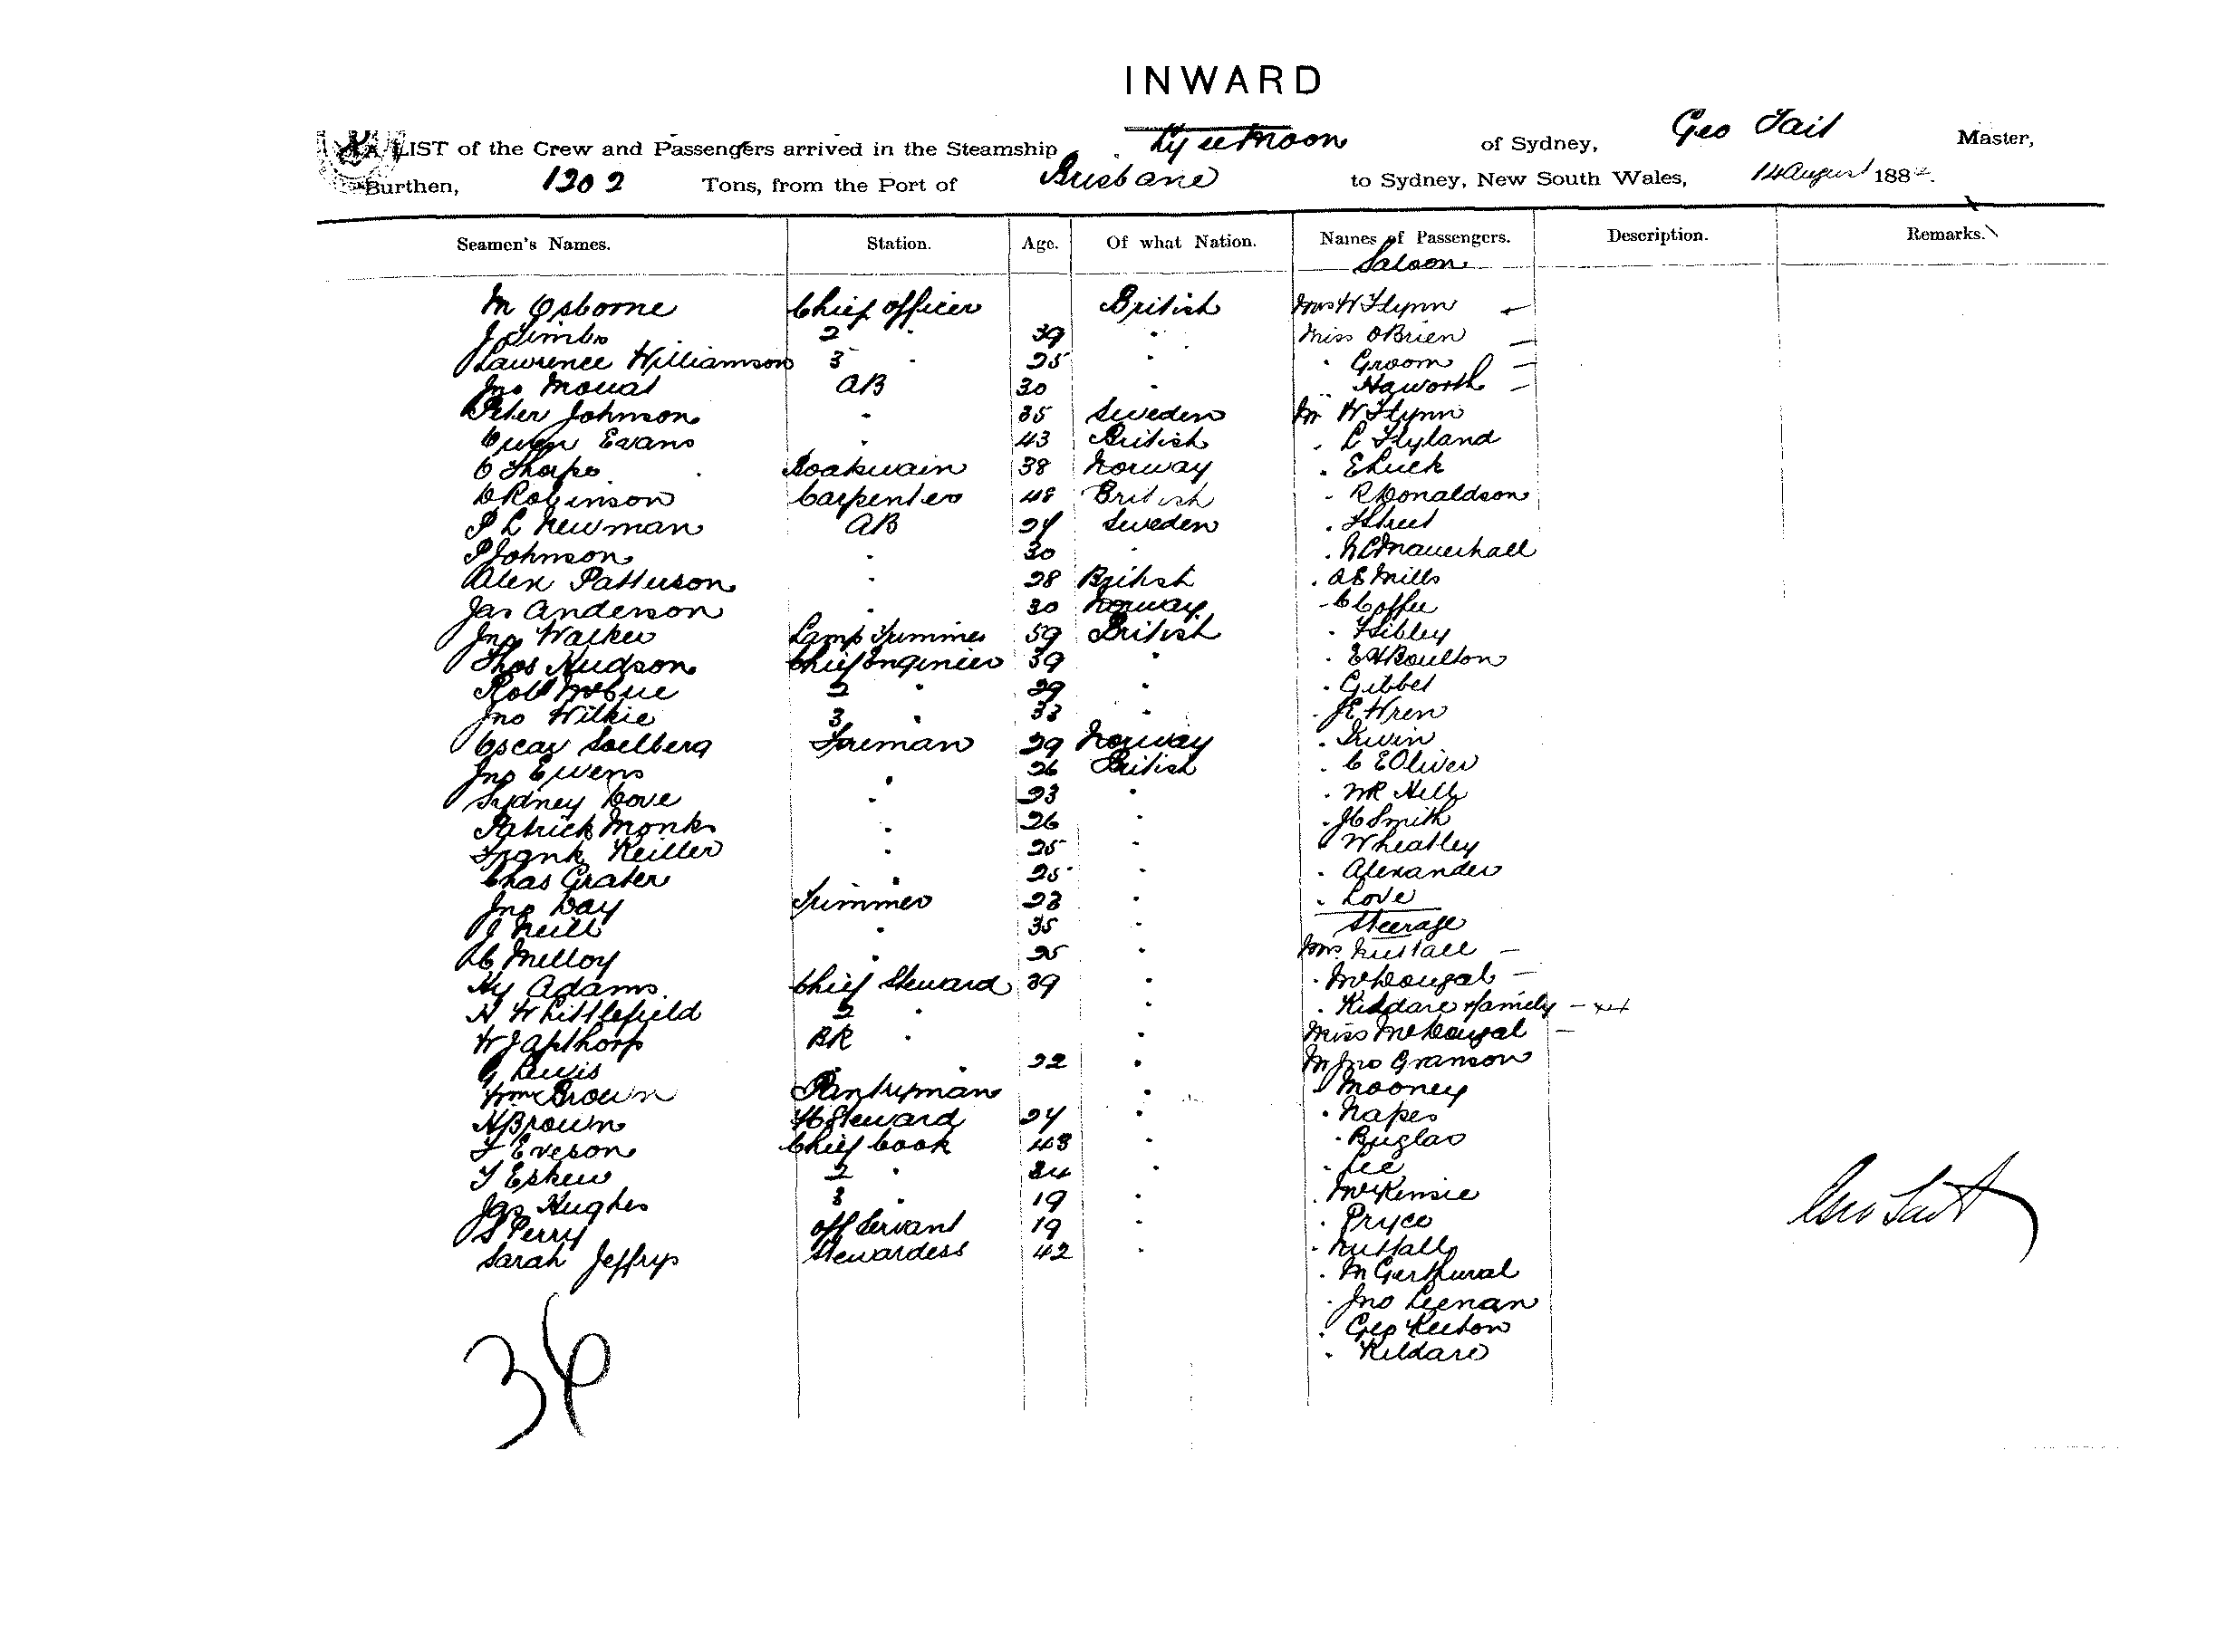 INWARD
A LIST of the Crew and Passengers arrived in the Steamship Ly ee Moon of Sydney, Geo Tait Master,
Burthen, 1202 Tons, from the Port of Brisbane to Sydney, New South Wales, 14 August 1882.
Seamen's Names. Station. Age. Of what Nation. Names of Passengers. Description. Remarks.
Saloon
M Osborne Chief Officer British Mrs W Flynn —
J Limbo 2 " 39 " Miss OBrien —
Lawrence Williamson 3 " 25 " " Groom —
Jno Mouat AB 30 " " Haworth —
Peter Johnson " 35 Sweden Mr W Flynn
Owen Evans " 43 British " L Hyland
C Thorpe Boatswain 38 Norway " E Luck
D Robinson Carpenter 48 British " R Donaldson
P L Newman AB 24 Sweden " F Street
P Johnson " 30 "
Alex Patterson " 28 British " A E Mills
Jas Anderson " 30 Norway " C Coffee
Jno Walker Lamp Trimmer 59 British " Sibley
Thos Hudson Chief Engineer 39 " " E H Boulton
Robt McCue 2 " 29 " " Gibbet
Jno Wilkie 3 " 33 " " J E Wren
Oscar Soelberg Fireman 29 Norway " Irwin
Jno Ewens " 26 British " C E Oliver
Sydney Cove " 23 " " W R Hill
Patrick Monks " 26 " " J C Smith
Frank Keiller " 25 " " Wheatley
Chas Grater " 25 " " Alexander
Jno Day Trimmer 23 " " Love
J Neill " 35 " Steerage
C Melloy " 25 " Mrs Nuttall —
Hy Adams Chief Steward 39 " " McDougal —
H Whittlefield 2 " " " Kildare & family —
W J Apthorp BR " " Miss McDougal —
G Lewis " " 22 " Mr Jno Granson
Wm Brown Pantryman " " Mooney
H Brown Steward 24 " " Napes
F Eveson Chief Cook 43 " " Buglas
T Eskew 2 " 34 " " Lee
Jas Hughes 3 " 19 " " McKensie
S Perry Off Servant 19 " " Pryce
Sarah Jeffrys Stewardess 42 " " Nuttall
" M
" Jno Leenan
" Geo Keeton
" Kildare
Geo Tait
36